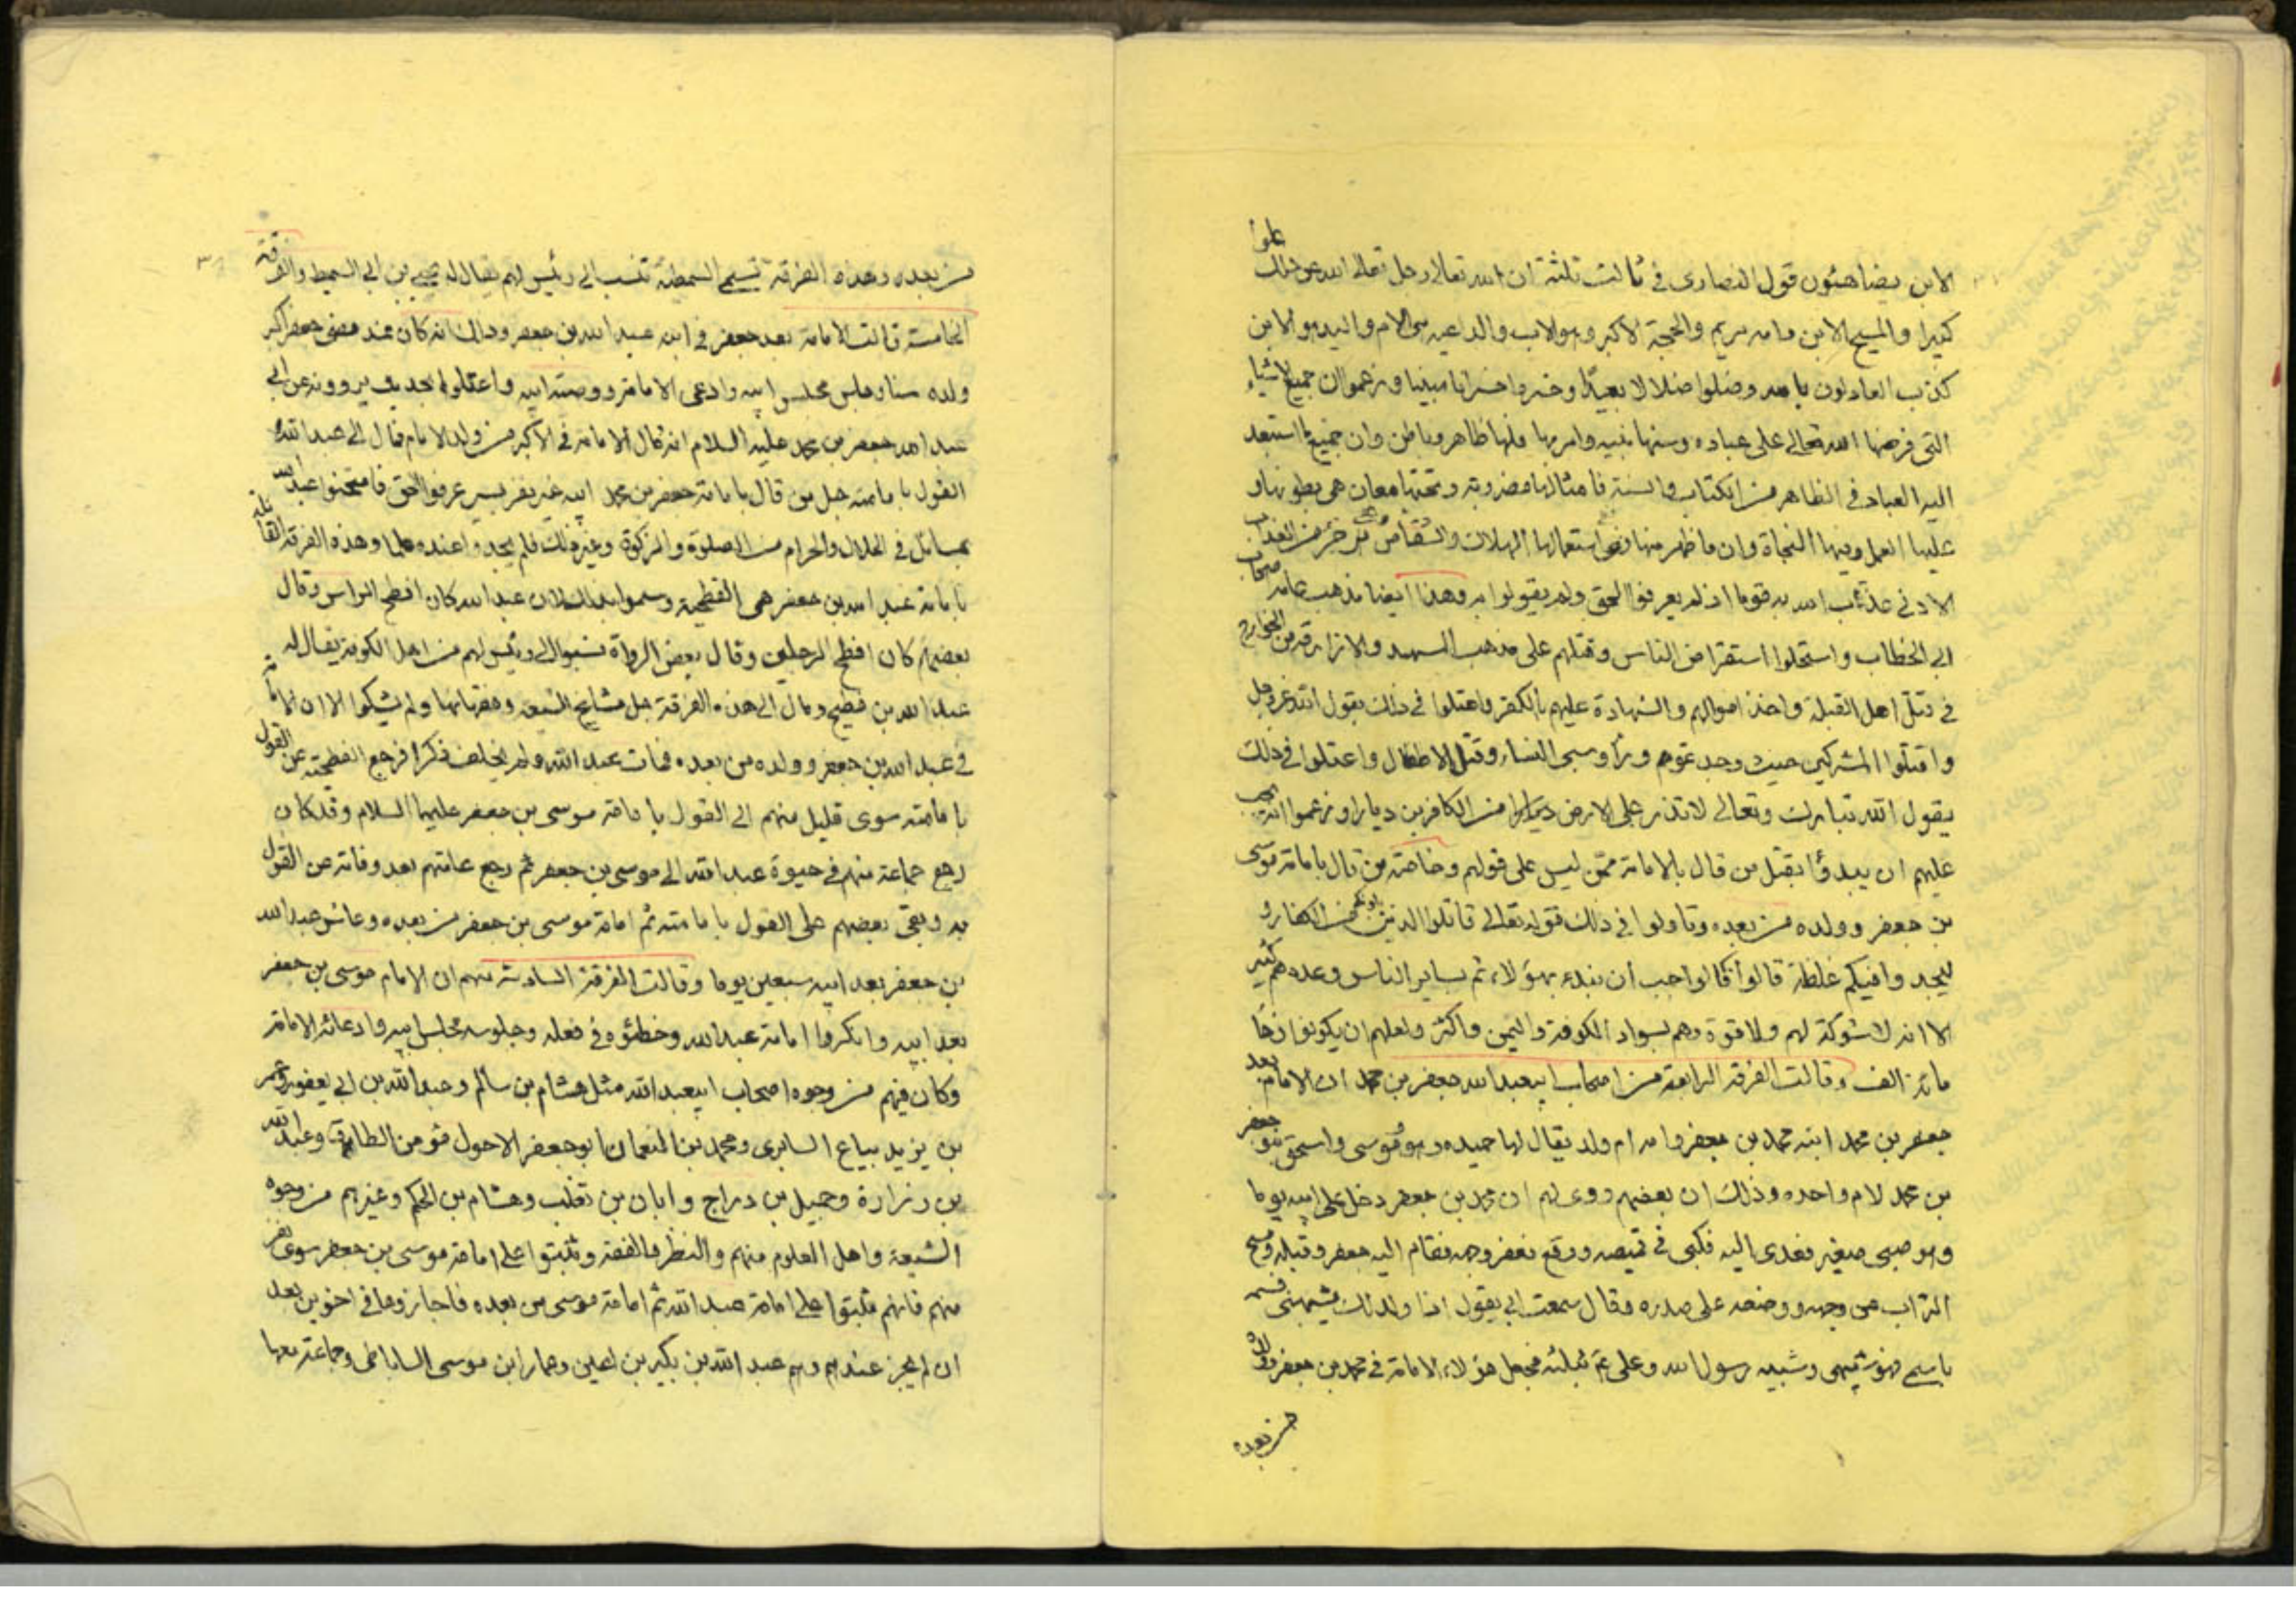 الابن يضاهئون قول النصارى في ثالث ثلثة ان الله تعالى وجل تعالى الله عن ذلك علوا
كبيرا والمسيح الابن وامه مريم والحجة الاكبر وهو الاب والداعيه هي الام واليد هو الابن
كذب العادلون بالله وضلوا ضلالا بعيدا وخسروا خسرانا مبينا وزعموا ان جميع الاشياء
التى فرضها الله تعالى على عباده وسنها نبيه وامر بها فلها ظاهر وباطن وان جميع ما استعبد
اليه العباد في الظاهر من الكتاب والسنة فامثالها مضروبة وتحتها معان هى بطونها و
عليها العمل وفيها النجاة وان ما ظهر منها ففى استعمالها الهلاك والشقاء من جزء من العذاب
الادنى عذب الله به قوما اذ لم يعرفوا الحق ولم يقولوا به وهذا ايضا مذهب عامة اصحاب
ابى الخطاب واستحلوا استقراض الناس وقتلهم على مذهب والازارقة من الخوارج
في قتل اهل القبلة واخذ اموالهم والشهادة عليهم بالكفر واعتلوا في ذلك بقول الله عز وجل
واقتلوا المشركين حيث وجدتموهم ورأوا سبى النساء وقتل الاطفال واعتلوا في ذلك
بقول الله تبارك وتعالى لا تذر على الارض من الكافرين ديارا وزعموا انه يجب
عليهم ان يبدؤا بقتل من قال بالامامة ممن ليس على قولهم وخاصة من قال بامامة موسى
بن جعفر وولده من بعده وتاولوا في ذلك قوله تعالى قاتلوا الذين يلونكم من الكفار و
ليجدوا فيكم غلظة قالوا فالواجب ان نبدء بهؤلاء ثم بساير الناس وعددهم كثير
الا انه لا شوكة لهم ولا قوة وهم بسواد الكوفة واليمن واكثر ولعلهم ان يكونوا زهاء
مائة الف وقالت الفرقة الرابعة من اصحاب ابيعبد الله جعفر بن محمد ان الامام بعد
جعفر بن محمد ابنه محمد بن جعفر وامه ام ولد يقال لها حميده وهو وموسى واسحق بنو جعفر
بن محمد لام واحده وذلك ان بعضهم روى لهم ان محمد بن جعفر دخل على ابيه يوما
وهو صبى صغير فعدى اليه فكبى في قميصه ووقع فعفر وجهه فقام اليه جعفر وقبله ومسح
التراب عن وجهه ووضعه على صدره وقال سمعت ابى يقول اذا ولد لك يشبهنى فسمه
باسمى فهو شبيهى وشبيه رسول الله وعلى فجعل هؤلاء الامامة في محمد بن جعفر وولده
من بعده
من بعده وهذه الفرقة تسمى السمطية تنسب الى رئيس لهم يقال له يحيى بن ابى السميط والفرقة
الخامسة قالت الامامة بعد جعفر في ابنه عبد الله بن جعفر وذلك انه كان عند مضى جعفر اكبر
ولده سنا وجلس مجلس ابيه وادعى الامامة ووصية ابيه واعتلوا بحديث يروونه عن ابى
عبد الله جعفر بن محمد عليه السلام انه قال الامامة في الاكبر من ولد الامام فمال الى عبد الله و
القول بامامته جل من قال بامامة جعفر بن محمد ابيه غير نفر يسير عرفوا الحق فامتحنوا عبد الله
بمسائل في الحلال والحرام من الصلوة والزكوة وغير ذلك فلم يجدوا عنده علما وهذه الفرقة القائلة
بامامة عبد الله بن جعفر هى الفطحية وسموا بذلك لان عبد الله كان افطح الراس وقال
بعضهم كان افطح الرجلين وقال بعض الرواة نسبوا الى رئيس لهم من اهل الكوفة يقال له
عبد الله بن فطيح ومال الى هذه الفرقة جل مشايخ الشيعة وفقهائها ولم يشكوا الا ان الامامة
في عبد الله بن جعفر وولده من بعده فمات عبد الله ولم يخلف ذكرا فرجع الفطحية عن القول
بامامته سوى قليل منهم الى القول بامامة موسى بن جعفر عليهما السلام وقد كان
رجع جماعة منهم في حيوة عبد الله الى موسى بن جعفر ثم رجع عامتهم بعد وفاته عن القول
به وبقى بعضهم على القول بامامته ثم امامة موسى بن جعفر من بعده وعاش عبد الله
بن جعفر بعد ابيه سبعين يوما وقالت الفرقة السادسة منهم ان الامام موسى بن جعفر
بعد ابيه وانكروا امامة عبد الله وخطئوه في فعله وجلوسه مجلس ابيه وادعائه الامامة
وكان فيهم من وجوه اصحاب ابيعبد الله مثل هشام بن سالم وعبد الله بن ابى يعفور وعمر
بن يزيد بياع السابرى ومحمد بن النعمان ابو جعفر الاحول مؤمن الطاق وعبد الله
بن زرارة وجميل بن دراج وابان بن تغلب وهشام بن الحكم وغيرهم من وجوه
الشيعة واهل العلوم منهم والنظر والفقه وثبتوا على امامة موسى بن جعفر سوى نفر
منهم فانهم ثبتوا على امامة عبد الله ثم امامة موسى من بعده فاجازوها في اخوين بعد
ان لم يجز عندهم وهم عبد الله بن بكير بن اعين وعمار ابن موسى الساباطى وجماعة معهما